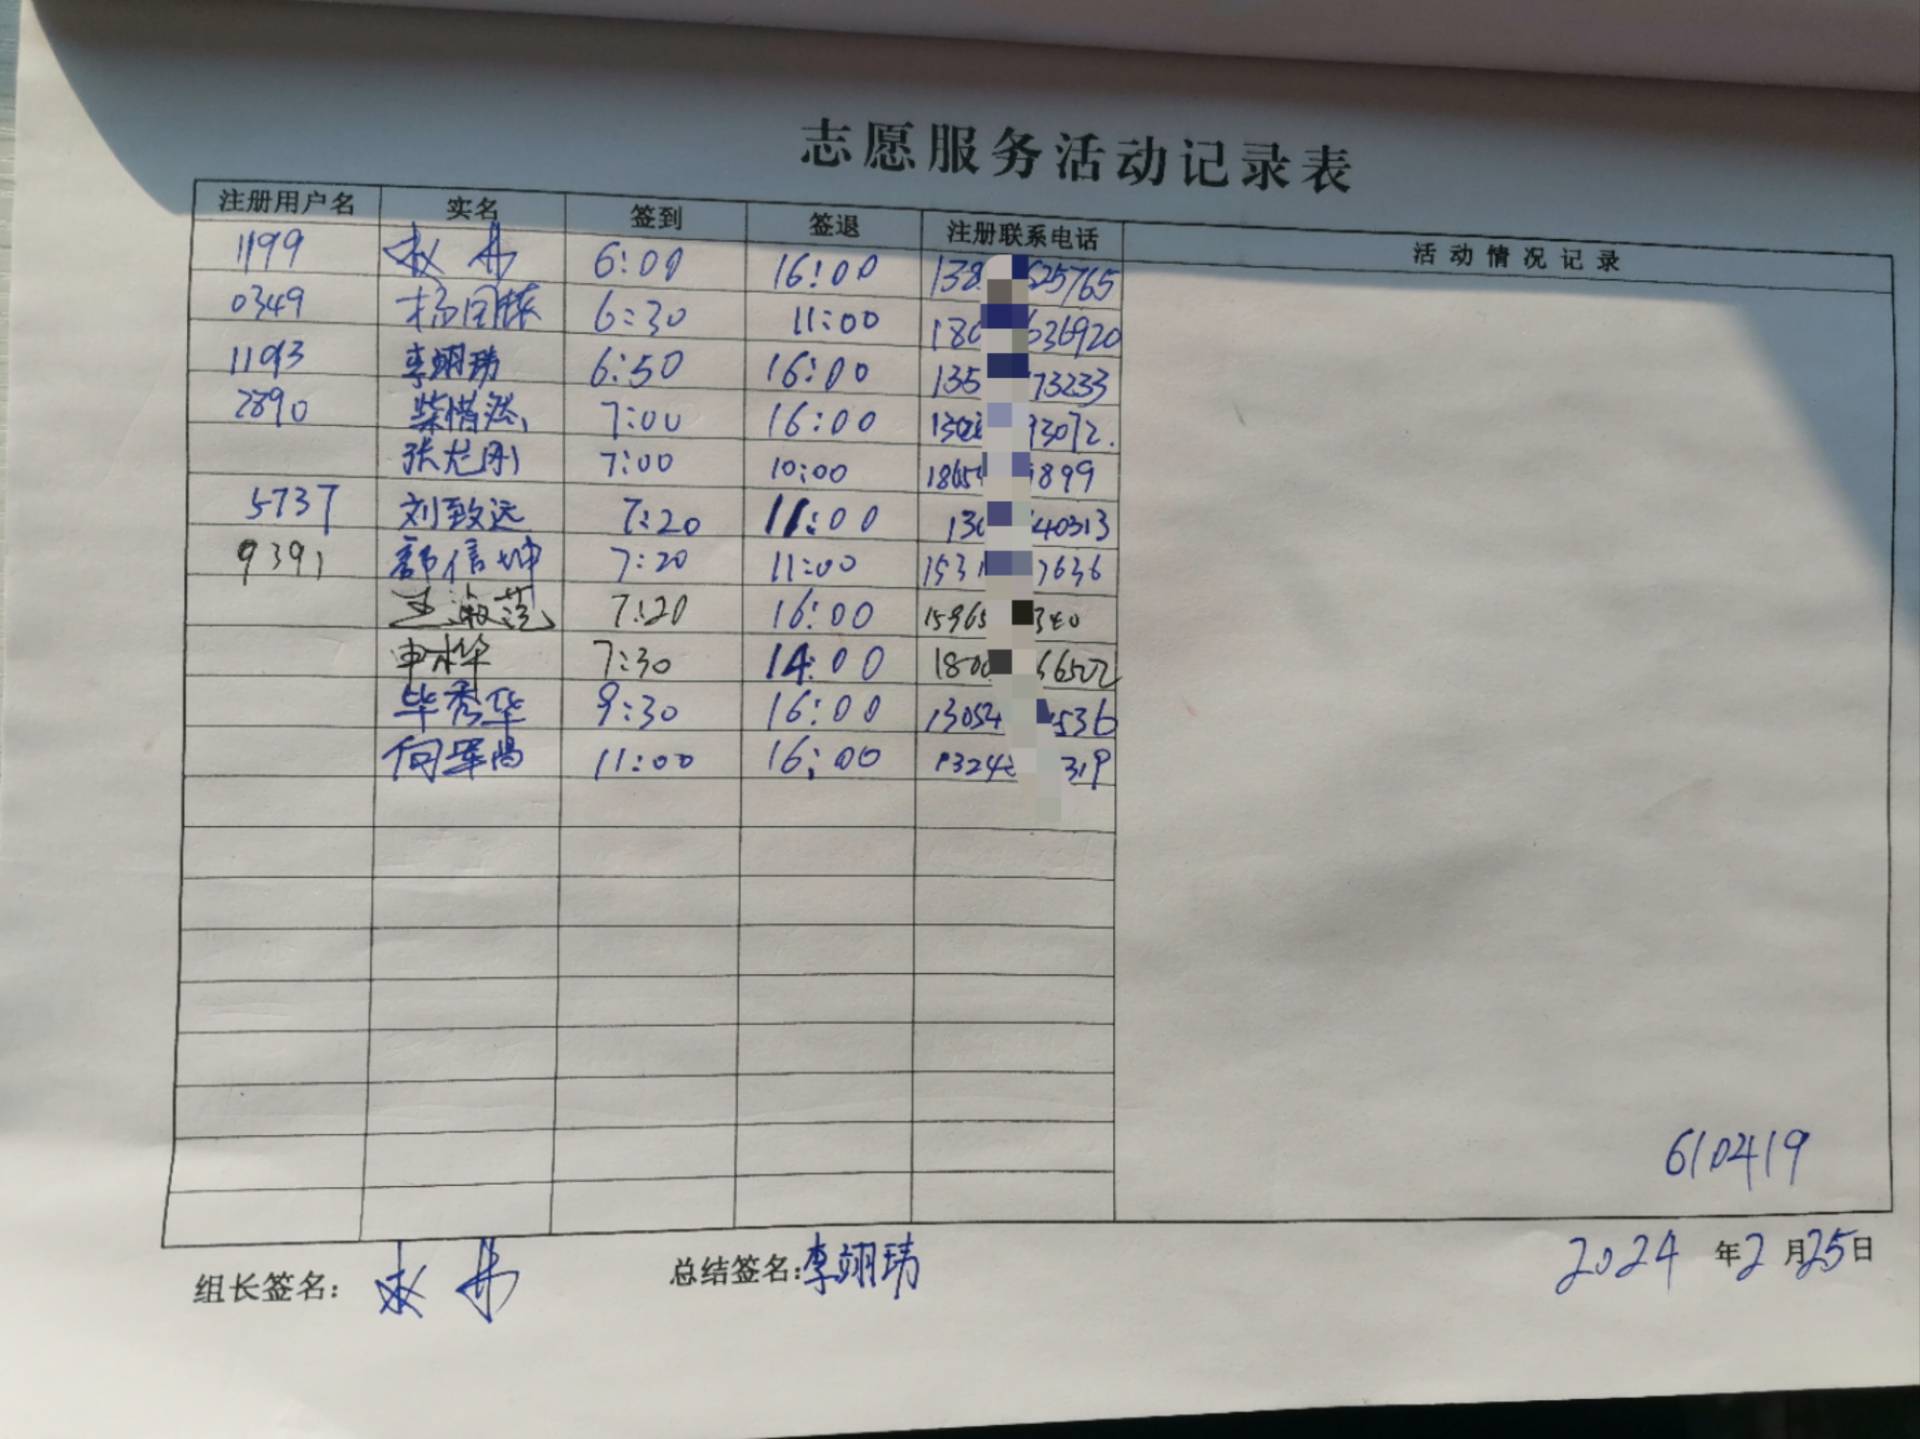 志愿服务活动记录表
注册用户名 实名 签到 签退 注册联系电话 活动情况记录
1199 6:00 16:00 138 625765
0349 杨国栋 6:30 11:00 180 636920
1193 李翊玮 6:50 16:00 135 73233
2890 柴惜然 7:00 16:00 1302 93072.
张龙刚 7:00 10:00 1865 899
5737 刘致远 7:20 11:00 130 40313
9391 郭信坤 7:20 11:00 1531 7636
王淑范 7:20 16:00 15965 340
申桦 7:30 14:00 1800 66502
毕秀华 9:30 16:00 13054 536
何军 11:00 16:00 1324 319
610419
组长签名: 总结签名:李翊玮 2024年2月25日